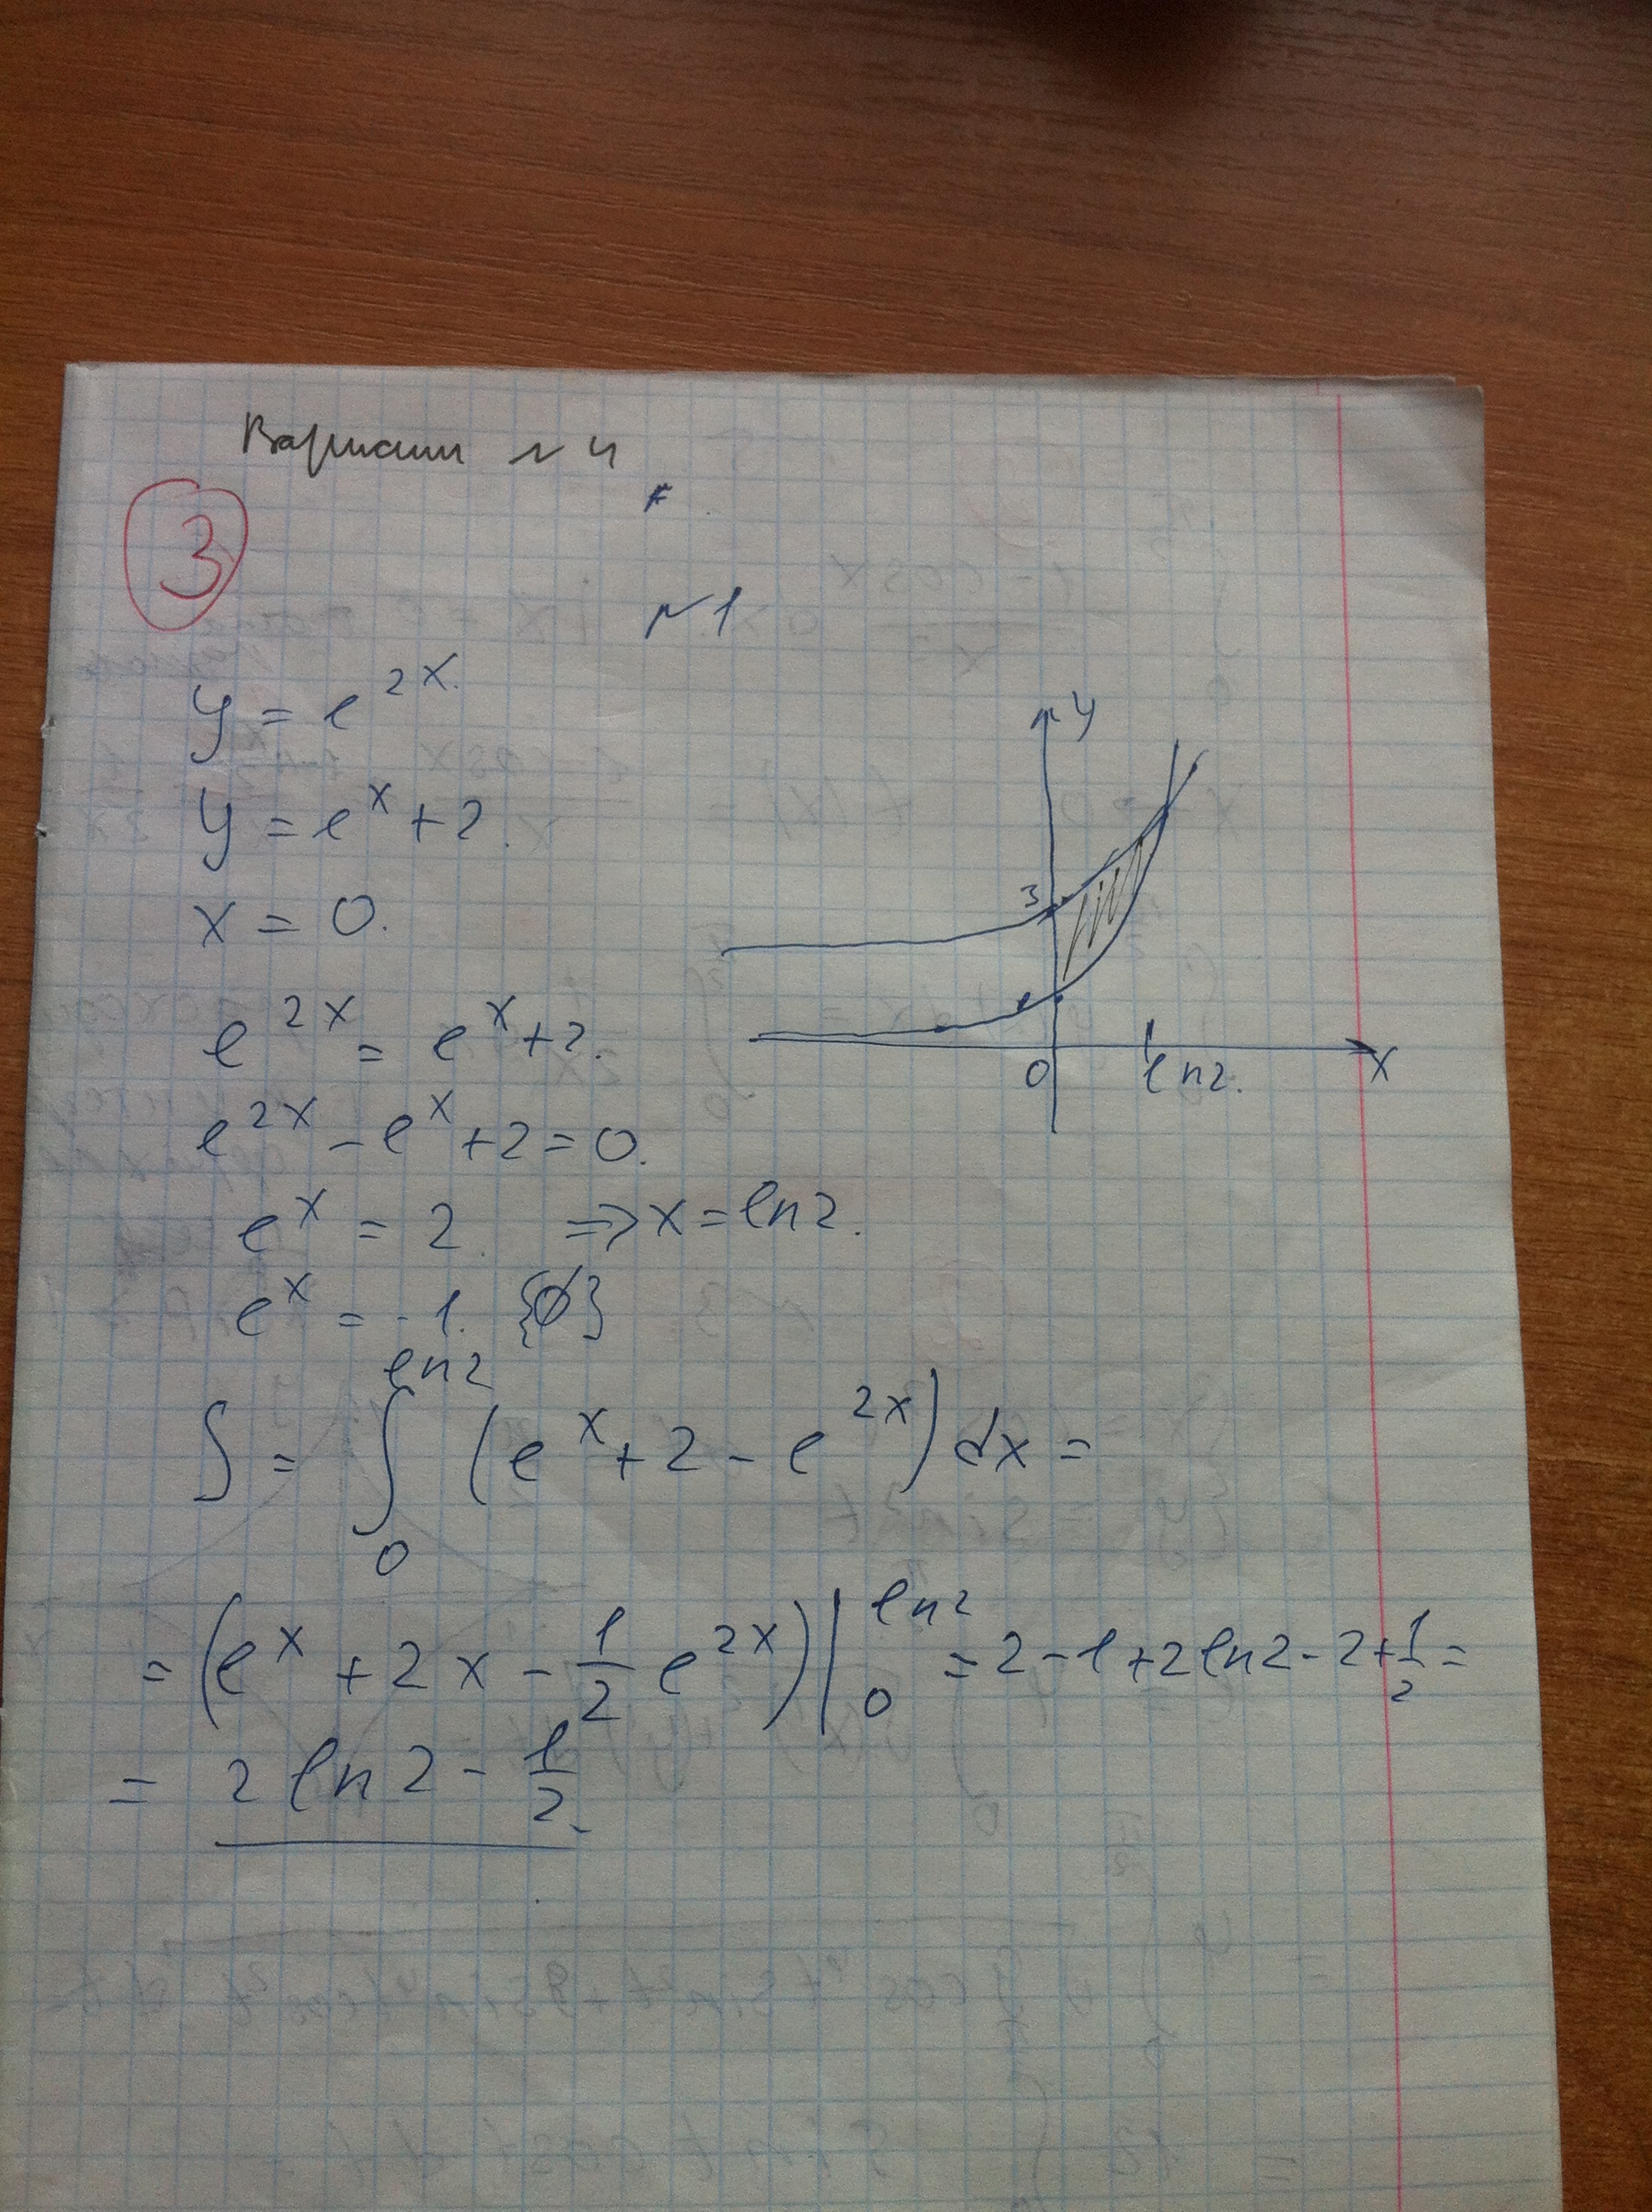 Вариант №4
3
№1
y = e^{2x}.
y = e^x + 2.
x = 0.
y
3
1
0
ln2.
x
e^{2x} = e^x + 2.
e^{2x} - e^x + 2 = 0.
e^x = 2. => x = ln2.
e^x = -1. {∅}
S = ∫_0^{ln2} (e^x + 2 - e^{2x}) dx =
= (e^x + 2x - 1/2 e^{2x}) |_0^{ln2} = 2 - 1 + 2ln2 - 2 + 1/2 =
= 2 ln2 - 1/2.